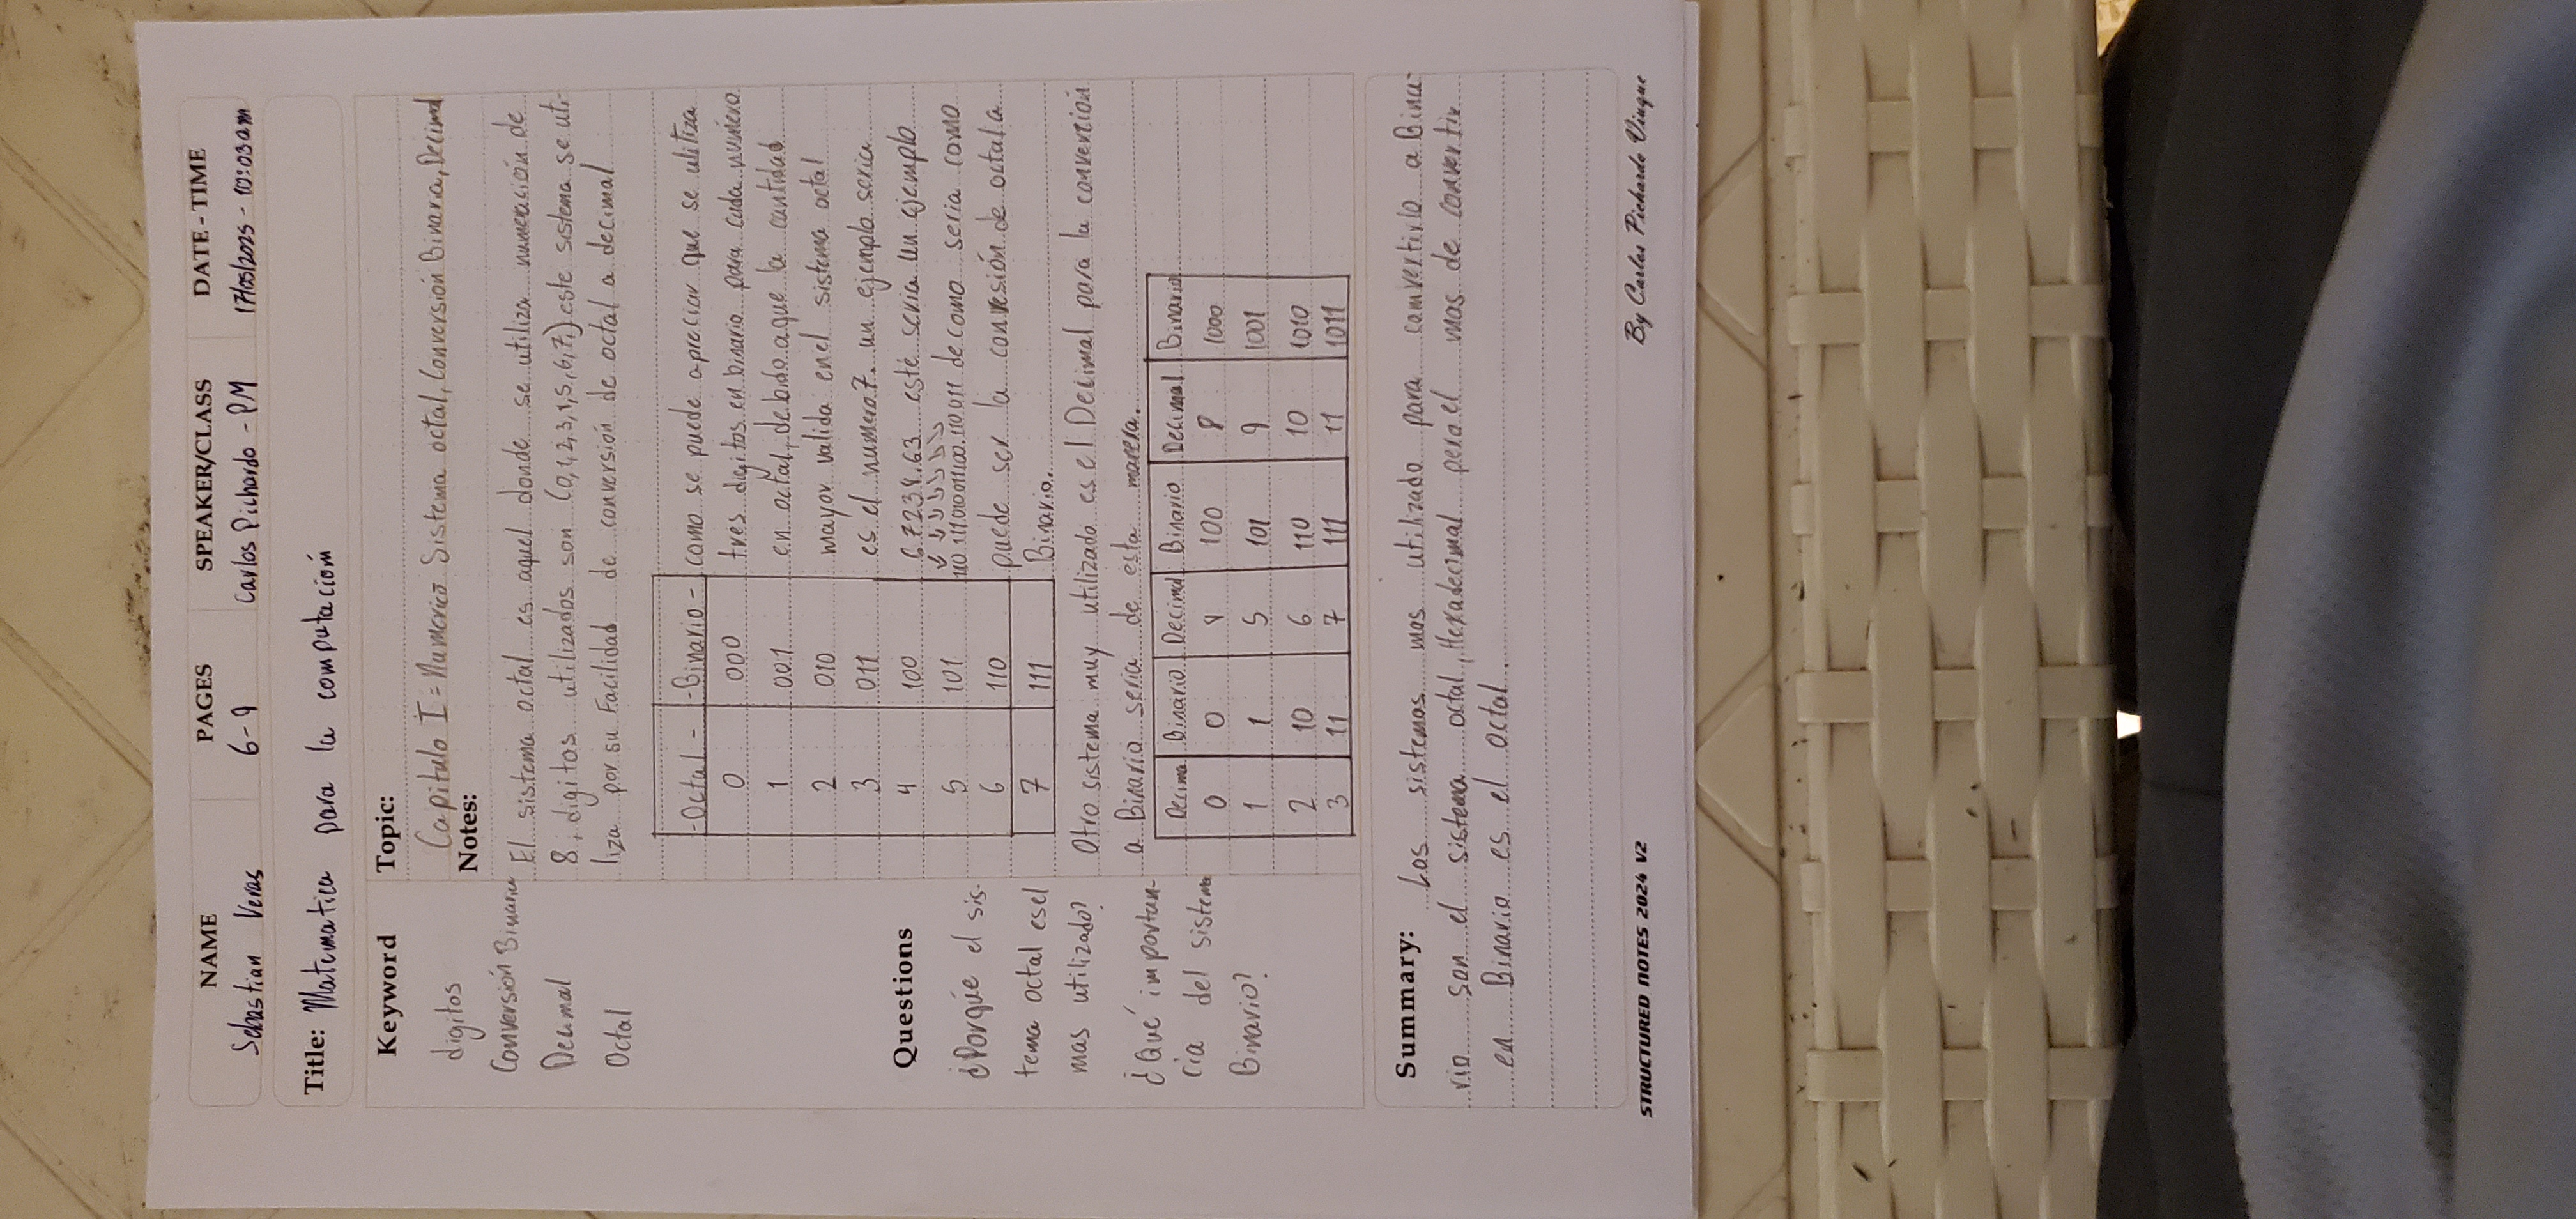 NAME PAGES SPEAKER/CLASS DATE - TIME
Sebastian Veras 6-9 Carlos Pichardo - PM 17/05/2025 - 10:03am
Title: Matematica para la computación
Keyword
digitos
Conversión Binaria
Decimal
Octal
Topic:
Capitulo I = Numerico Sistema octal, Conversión Binaria, Decimal
Notes:
El sistema octal es aquel donde se utiliza numeración de
8, digitos utilizados son (0,1,2,3,4,5,6,7,) este sistema se uti-
liza por su Facilidad de conversión de octal a decimal
-Octal- -Binario-
0 000
1 001
2 010
3 011
4 100
5 101
6 110
7 111
como se puede apreciar que se utiliza
tres digitos en binario para cada numero
en octal, debido a que la cantidad
mayor valida en el sistema octal
es el numero 7. un ejemplo seria
67234.63 esté seria un ejemplo
110 111010011100.110011 de como seria como
puede ser la convesión de octal a
Binario.
Otro sistema muy utilizado es el Decimal para la converción
a Binario seria de esta manera.
Decima Binario Decimal Binario Decimal Binario
0 0 4 100 8 1000
1 1 5 101 9 1001
2 10 6 110 10 1010
3 11 7 111 11 1011
Questions
¿Porqúe el sis-
tema octal es el
mas utilizado?
¿Qué importan-
cia del sistema
Binario?
Summary: Los sistemas mas utilizado para comvertirlo a Bina-
rio son el sistema octal, Hexadecimal pero el mas de convertir
en Binario es el octal.
STRUCTURED NOTES 2024 V2
By Carlos Pichardo Viuque